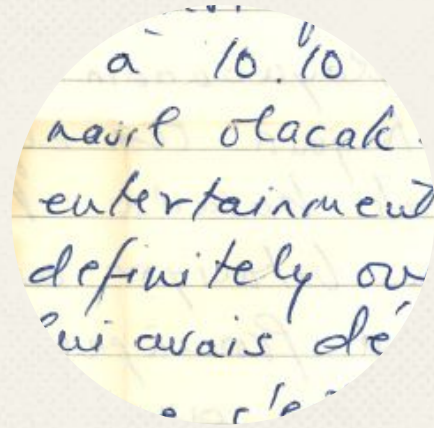 à 10.10
nasıl olacak
entertainment
definitely ov
lui avais dé